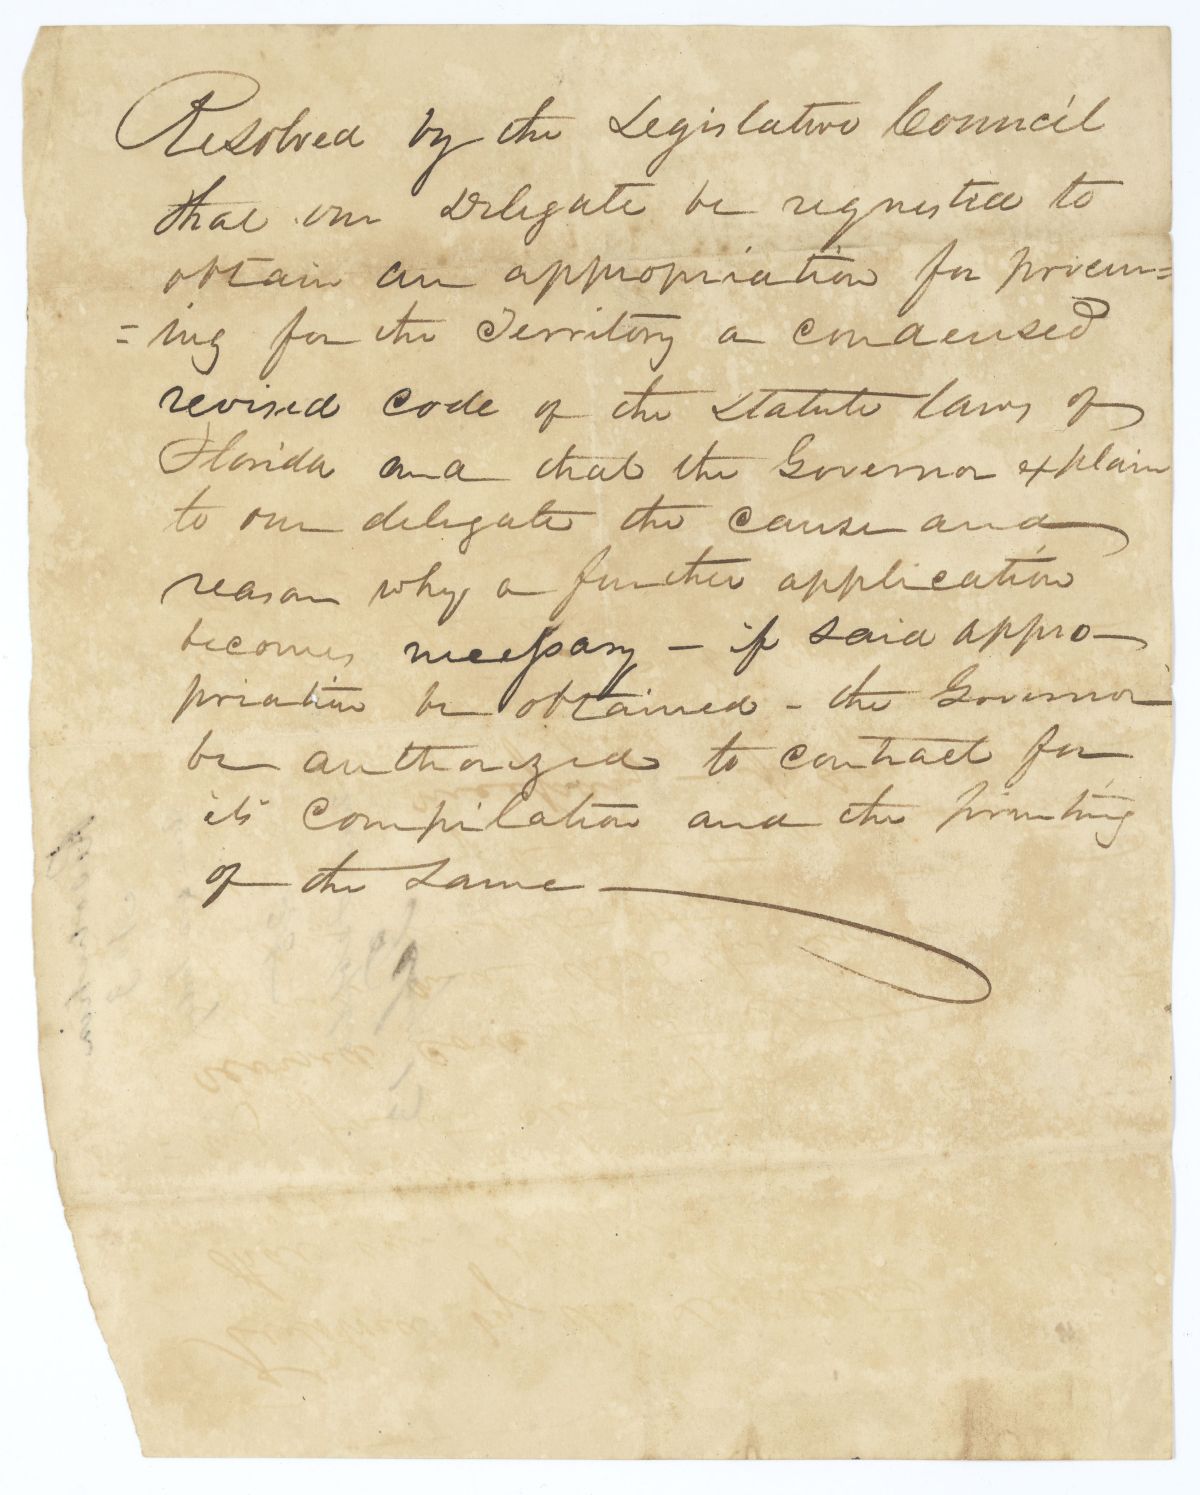 Resolved by the Legislative Council
that our Delegate be requested to
obtain an appropriation for procur=
=ing for the Territory a condensed
revised code of the Statute laws of
Florida and that the Governor explain
to our delegate the cause and
reason why a further application
becomes necessary - if said appro-
priation be obtained - the Governor
be authorized to contract for
its compilation and the printing
of the same